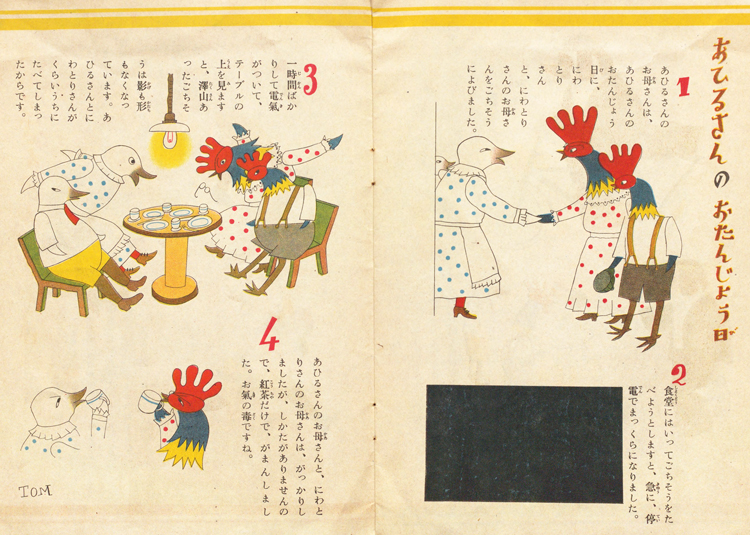 あひるさんのおたんじょう日
1
あひるさんの
お母さんは、
あひるさんの
おたんじょう
日に、
にわ
とり
さん
と、にわとり
さんのお母さ
んをごちそう
によびました。
2
食堂にはいってごちそうをた
べようとしますと、急に、停
電でまっくらになりました。
3
一時間ばか
りして電氣
がついて、
テーブルの
上を見ます
と、澤山あ
ったごちそ
うは影も形
もなくなっ
ています。あ
ひるさんとに
わとりさんが
くらいうちに
たべてしまっ
たからです。
4
あひるさんのお母さんと、にわと
りさんのお母さんは、がっかりし
ましたが、しかたがありませんの
で、紅茶だけで、がまんしまし
た。お氣の毒ですね。
TOM